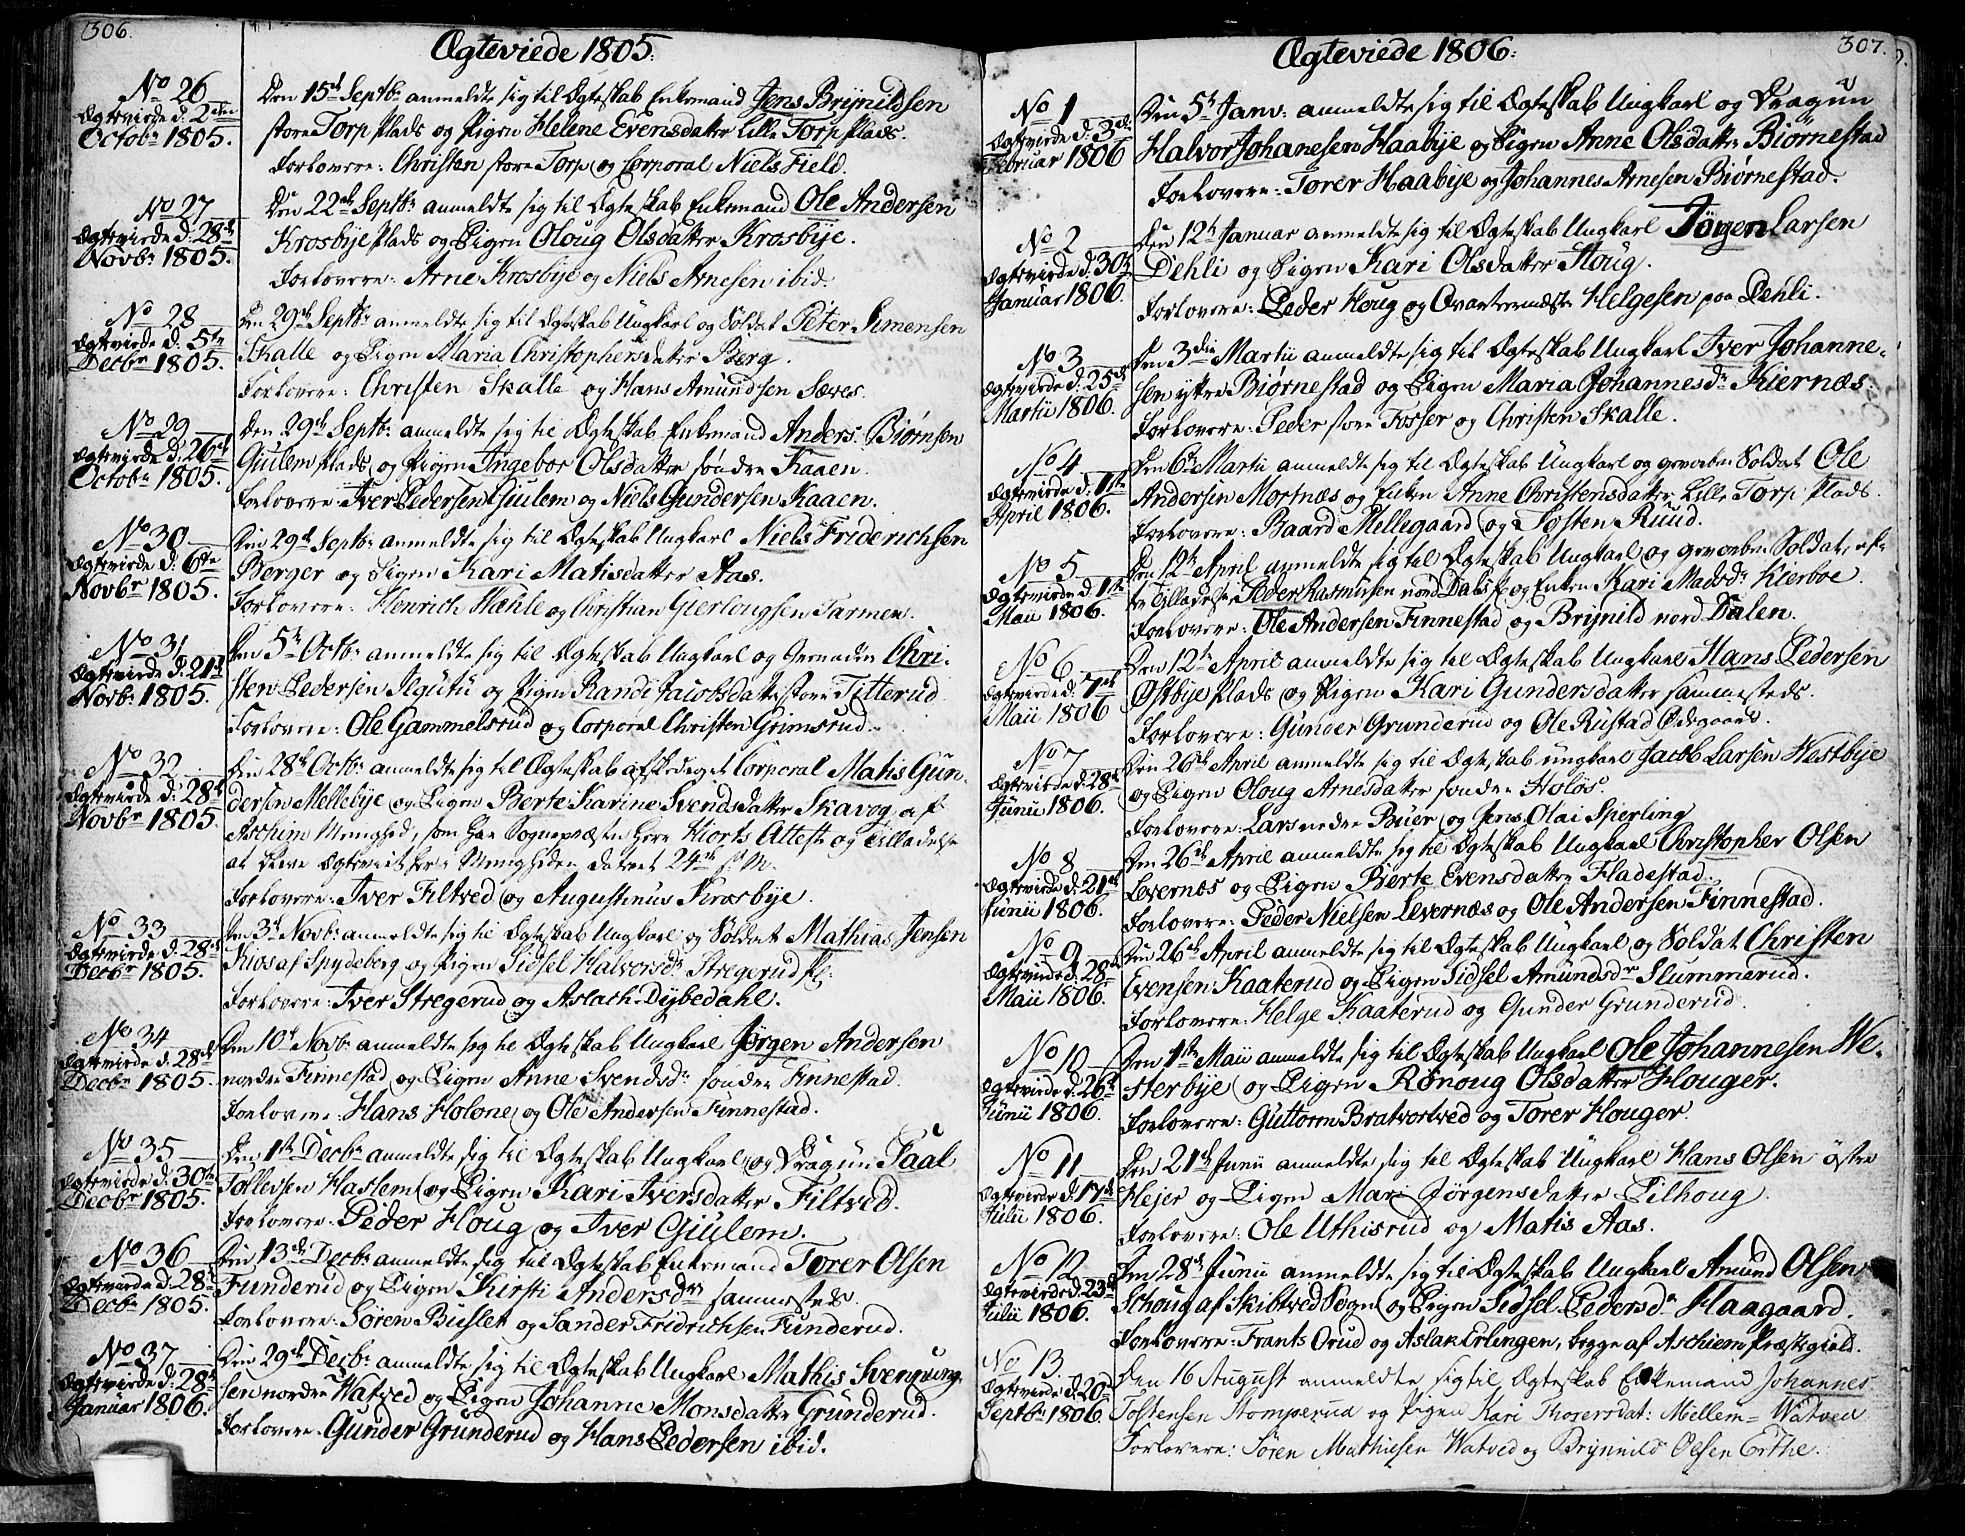 306.
Ægteviede 1805.
No 26
Ægteviede d. 2den
Octobr 1805.
Den 15d Septbr anmeldte sig til Ægteskab Enkemand Jens Brynildsen
store Torp Plads og Pigen Helene Evensdatter Lille Torp Plads.
Forlovere: Christen store Torp og Corporal Niels Field.
No 27
Ægteviede d. 28d
Novbr 1805.
Den 22de Septbr anmeldte sig til Ægteskab Enkemand Ole Andersen
Krosbye Plads og Pigen Oloug Olsdatter Krosbye.
Forlovere: Arne Krosbye og Niels Arnesen ibid.
No 28
Ægteviede d. 5te
Decbr 1805.
Den 29de Septbr anmeldte sig til Ægteskab Ungkarl og Soldat Peter Simensen
Skalle og Pigen Maria Christophersdatter Berg.
Forlovere: Christen Skalle og Hans Amundsen Sæves.
No 29
Ægteviede d. 26de
Octobr 1805.
Den 29de Septbr anmeldte sig til Ægteskab Enkemand Anders Biørnsen
Giulem Plads og Pigen Ingebor Olsdatter søndre Kaaen.
Forlovere Iver Pedersen Giulem og Niels Gundersen Kaaen.
No 30
Ægteviede d. 6te
Novbr 1805.
Den 29de Septbr anmeldte sig til Ægteskab Ungkarl Niels Friderichsen
Berger og Pigen Kari Matisdatter Aas.
Forlovere: Henrich Mæhle og Christian Gierlougsen Tarmen.
No 31
Ægteviede d. 21de
Novbr 1805.
Den 5te Octbr anmeldte sig til Ægteskab Ungkarl og Grenader Chri-
sten Pedersen og Pigen Randi Jacobsdatter store Titterud
Forlovere: Ole Gammelsrud og Corporal Christen Grimsrud.
No 32
Ægteviede d. 28de
Novbr 1805.
Den 28de Octbr anmeldte sig til Ægteskab afskediget Corporal Matis Gun-
dersen Mellebye og Pigen Berte Karine Svendsdatter Skavog af
Aschim Menighed, som har Sognepræsten Herr Hiorts Attest og Tilladelse
at blive Ægteviet her i Menigheden dateret 24de
Forlovere: Iver Filtved og Augustinus Krosbye.
No 33
Ægteviede d. 28de
Decbr 1805.
Den 3d Novbr anmeldte sig til Ægteskab Ungkarl og Soldat Mathias Jensen
Ruos af Spydeberg og Pigen Sidsel Halvorsdr Stregerud Pl:
Forlovere: Iver Stregerud og Aslach Dybedahl.
No 34
Ægteviede d. 28de
Decbr 1805.
Den 10d Novbr anmeldte sig til Ægteskab Ungkarl Jørgen Andersen
nordre Finnestad og Pigen Anne Svendsdr søndre Finnestad.
Forlovere: Hans Holone og Ole Andersen Finnestad.
No 35
Ægteviede d. 30te
Decbr 1805.
Den 1ste Decbr anmeldte sig til Ægteskab Ungkarl og Dragun Paal
Tollevsen Haslem og Pigen Kari Iversdatter Filtved.
Forlovere: Peder Houg og Iver Giulem.
No 36
Ægteviede d. 28d
Decbr 1805.
Den 13de Decbr anmeldte sig til Ægteskab Enkemand Torer Olsen
Funderud og Pigen Kirsti Andersdr sammesteds.
Forlovere: Søren Buslet og Sander Fridrichsen Funderud.
No 37
Ægteviede d. 28de
Januar 1806.
Den 29de Decbr anmeldte sig til Ægteskab Ungkarl Mathis Svennung-
sen nordre Watved og Pigen Johanne Monsdatter Grunderud.
Forlovere: Gunder Grunderud og Hans Pedersen ibid.
307.
Ægteviede 1806:
No 1
Ægteviede d. 3de
Februar 1806
Den 5te Janv: anmeldte sig til Ægteskab Ungkarl og Dragun
Halvor Johanesen Haabye og Pigen Anne Olsdatter Biørnestad
Forlovere: Torer Haabye og Johannes Arnesen Biørnestad.
No 2
Ægteviede d. 30te
Januar 1806.
Den 12te Januar anmeldte sig til Ægteskab Ungkarl Jörgen Larsen
Dehli og Pigen Kari Olsdatter Houg.
Forlovere: Peder Houg og Qvarteermester Helgesen paa Dehli.
No 3
Ægteviede d. 25de
Martii 1806.
Den 3die Martii anmeldte sig til Ægteskab Ungkarl Iver Johanne-
sen ytre Biørnestad og Pigen Maria Johannesdr Kiernæs.
Forlovere: Peder store Fosser og Christen Skalle.
No 4
Ægteviede d. 11te
April 1806.
Den 6te Martii anmeldte sig til Ægteskab Ungkarl og gevorben Soldat Ole
Andersen Mortnæs og Enken Anne Christensdatter Lille Torp Plads.
Forlovere: Baard Mellegaard og Tosten Ruud.
No 5
Ægteviede d. 1ste
Maii 1806.
Den 12te April anmeldte sig til Ægteskab Ungkarl og gevorben Soldat, ef-
ter Tilladelse Peder Rasmusen nord Dals Pl og Enken Kari Madsdr Kierboe.
Forlovere: Ole Andersen Finnestad og Brynild nord Dalen.
No 6
Ægteviede d. 7de
Maii 1806
Den 12te April anmeldte sig til Ægteskab Ungkarl Hans Pedersen
Østbye Plads og Pigen Kari Gundersdatter sammesteds.
Forlovere: Gunder Grunderud og Ole Rustad Ødegaard.
No 7
Ægteviede d. 28de
Junii 1806.
Den 26de April anmeldte sig til Ægteskab ungkarl Jacob Larsen Westbye
og Pigen Oloug Arnesdatter søndre Holøs.
Forlovere: Lars nedre Buer og Jens Olai Sperling
No 8
Ægteviede d. 21de
Junii 1806.
Den 26de April anmeldte sig til Ægteskab Ungkarl Christopher Olsen
Levernæs og Pigen Berte Evensdatter Fladestad.
Forlovere: Peder Nielsen Levernæs og Ole Andersen Finnestad.
No 9
Ægteviede d. 28de
Maii 1806.
Den 26de April anmeldte sig til Ægteskab Ungkarl og Soldat Christen
Evensen Kaaterud og Pigen Sidsel Amundsdr Slummerud.
Forlovere: Helge Kaaterud og Gunder Grunderud.
No 10
Ægteviede d. 26de
Junii 1806.
Den 1ste Maii anmeldte sig til Ægteskab Ungkarl Ole Johannesen We-
sterbye og Pigen Rönoug Olsdatter Houger.
Forlovere: Guttorm Bratvortved og Torer Houger.
No 11
Ægteviede d. 17de
Julii 1806.
Den 21de Junii anmeldte sig til Ægteskab Ungkarl Hans Olsen östre
Hejer og Pigen Mari Jörgensdatter Pilhoug.
Forlovere: Ole Uthisrud og Matis Aas.
No 12
Ægteviede d. 23de
Julii 1806.
Den 28de Junii anmeldte sig til Ægteskab Ungkarl Amund Olsen
Schoug af Skibtved Sogn og Pigen Sidsel Pedersdr Haagaard.
Forlovere: Frants Orud og Aslak Erlingen, begge af Aschiem Præstegield.
No 13
Ægteviede d. 20de
Septbr 1806.
Den 16 August anmeldte sig til Ægteskab Enkemand Johannes
Tostensen Stomperud og Pigen Kari Thorersdat: Mellem-Watved
Forlovere: Søren Mathiesen Watved og Brynnild Olsen Erthe.